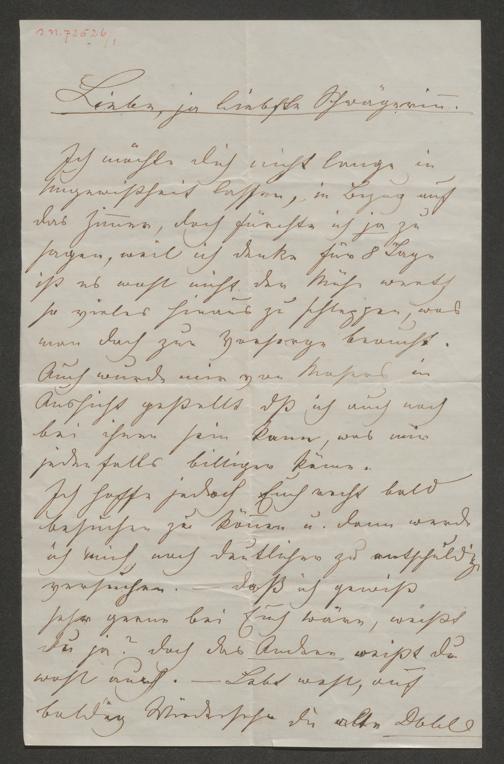 I.N. 72526/1
Liebe, ja liebste Schwägerin.
Ich möchte dich nicht lange in
Ungewißheit lassen, in Bezug auf
das Zimer, doch fürchte ich ja zu
sagen, weil ich denke für 8 Tage
ist es wohl nicht der Mühe werth
so vieles hinaus zu schleppen, was
man doch zur Vorsorge braucht.
Auch wurde mir von Mosers in
Aussicht gestellt dß ich auch noch
bei ihnen sein kann, was mir
jedenfalls billiger käme.
Ich hoffe jedoch Euch recht bald
besuchen zu könen u. dann werde
ich mich noch deutlicher zu entschuldig
versuchen. — daß ich gewiß
sehr gerne bei Euch wäre, weißt
du ja? doch das Andere weißt du
wohl auch. — Lebt wohl, auf
baldig Wiedersehn die alte